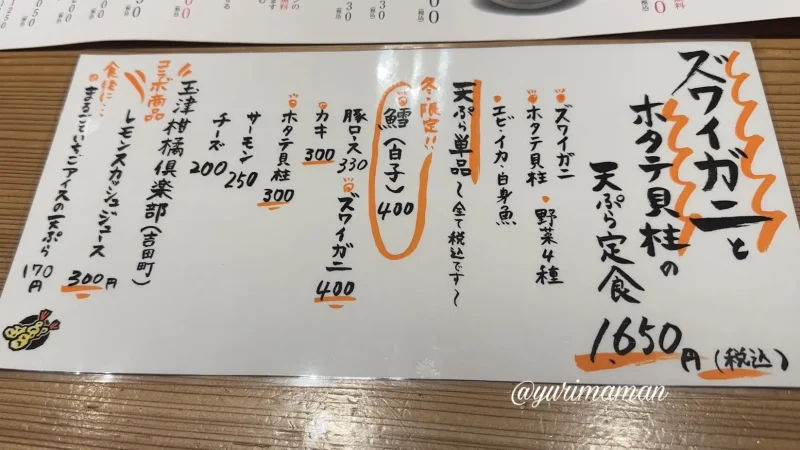 ズワイガニと
ホタテ貝柱の
天ぷら定食
1,650円(税込)
・ズワイガニ
・ホタテ貝柱
・野菜4種
・エビ・イカ・白身魚
天ぷら単品～全て税込です～
冬・限定!!
鱈(白子)400
ズワイガニ
400
豚ロース330
カキ
300
ホタテ貝柱
300
サーモン
250
チーズ
200
玉津柑橘倶楽部(吉田町)
コラボ商品
レモンスカッシュジュース
300円
食後に…
まるごといちごアイスの天ぷら
170円
@yurimaman